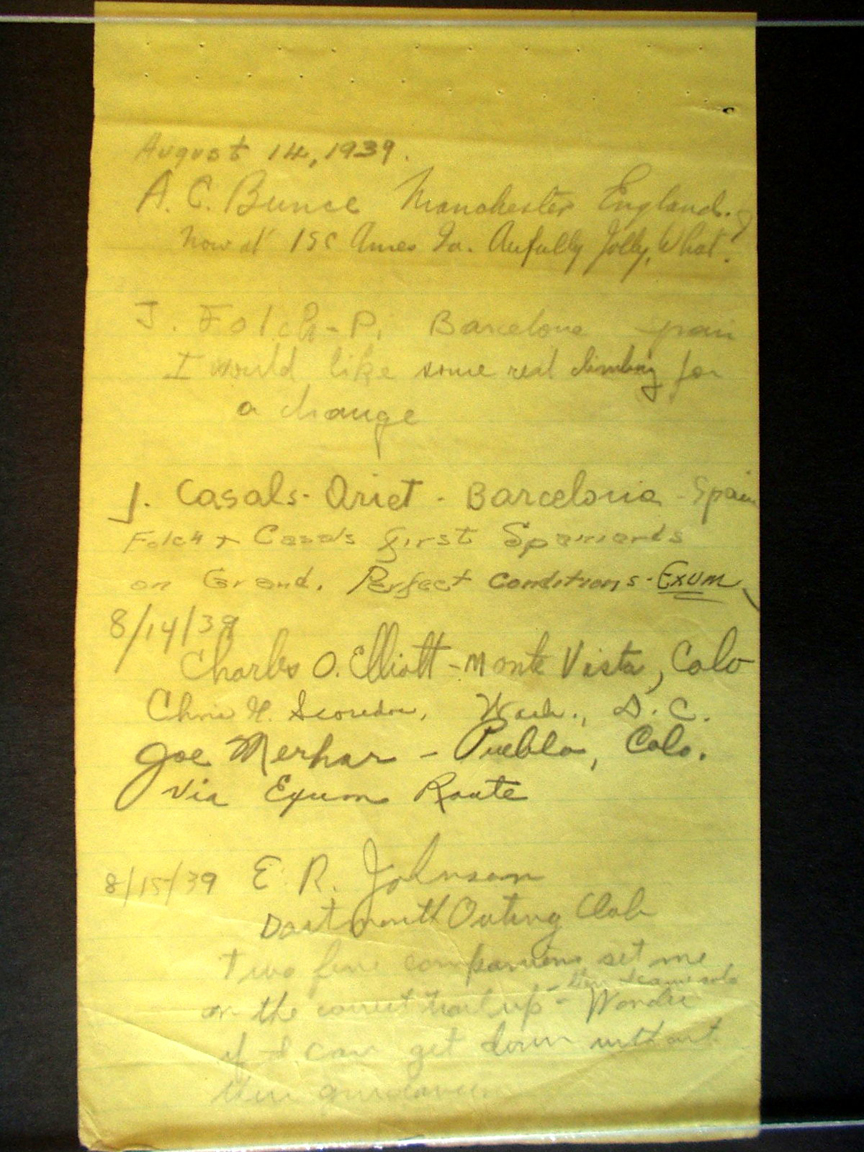 August 14, 1939.
A. C. Bunce Manchester England.
now at ISC Ames Ia. Awfully Jolly, What.?
J. Folch-Pi Barcelona Spain
I would like some real climbing for
a change
J. Casals-Ariet - Barcelona - Spain
Folch + Casals first Spaniards
on Grand. Perfect conditions - Exum
8/14/39
Charles O. Elliott - Monte Vista, Colo
Chris G. Wash., D.C.
Joe Merhar - Pueblo, Colo.
Via Exum Route
8/15/39 E. R. Johnson
Dartmouth Outing Club
two fine companions set me
on the correct trail up - then came solo
Wonder
if I can get down without
their guidance